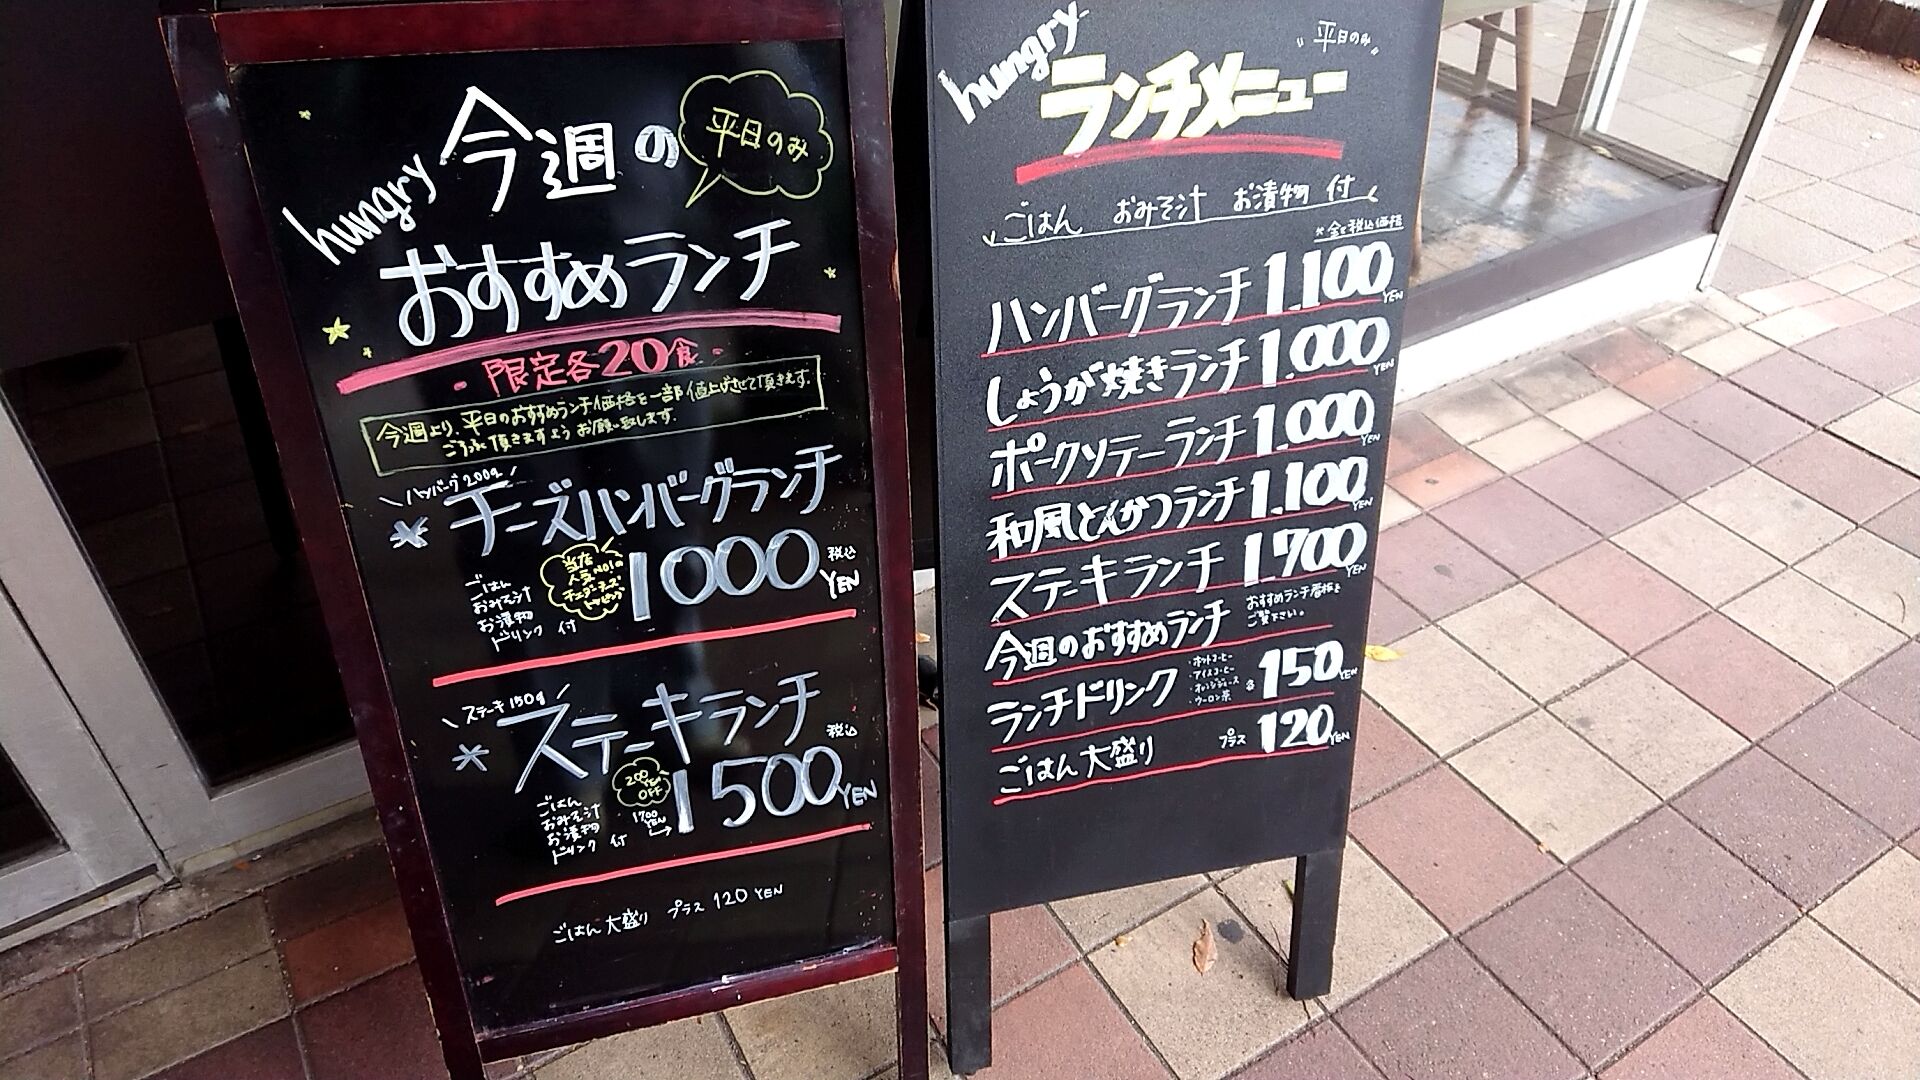 hungry
今週の
平日のみ
おすすめランチ
限定各20食
今週より、平日のおすすめランチ価格を一部値上げさせて頂きます。
ご了承頂きますようお願い致します。
ハンバーグ200g
* チーズハンバーグランチ
当店
人気NO.1の
チェダーチーズ
トッピング
1000 税込
YEN
ごはん
おみそ汁
お漬物
ドリンク 付
ステーキ150g
* ステーキランチ
200
YEN
OFF
1700
YEN
→
1500 税込
YEN
ごはん
おみそ汁
お漬物
ドリンク 付
ごはん大盛り プラス 120 YEN
hungry
"平日のみ"
ランチメニュー
ごはん おみそ汁 お漬物 付
*全て税込価格
ハンバーグランチ 1.100 YEN
しょうが焼きランチ 1.000 YEN
ポークソテーランチ 1.000 YEN
和風とんかつランチ 1.100 YEN
ステーキランチ 1.700 YEN
今週のおすすめランチ
おすすめランチ看板を
ご覧下さい。
ランチドリンク
・ホットコーヒー
・アイスコーヒー
・オレンジジュース
・ウーロン茶
各 150 YEN
ごはん大盛り プラス 120 YEN